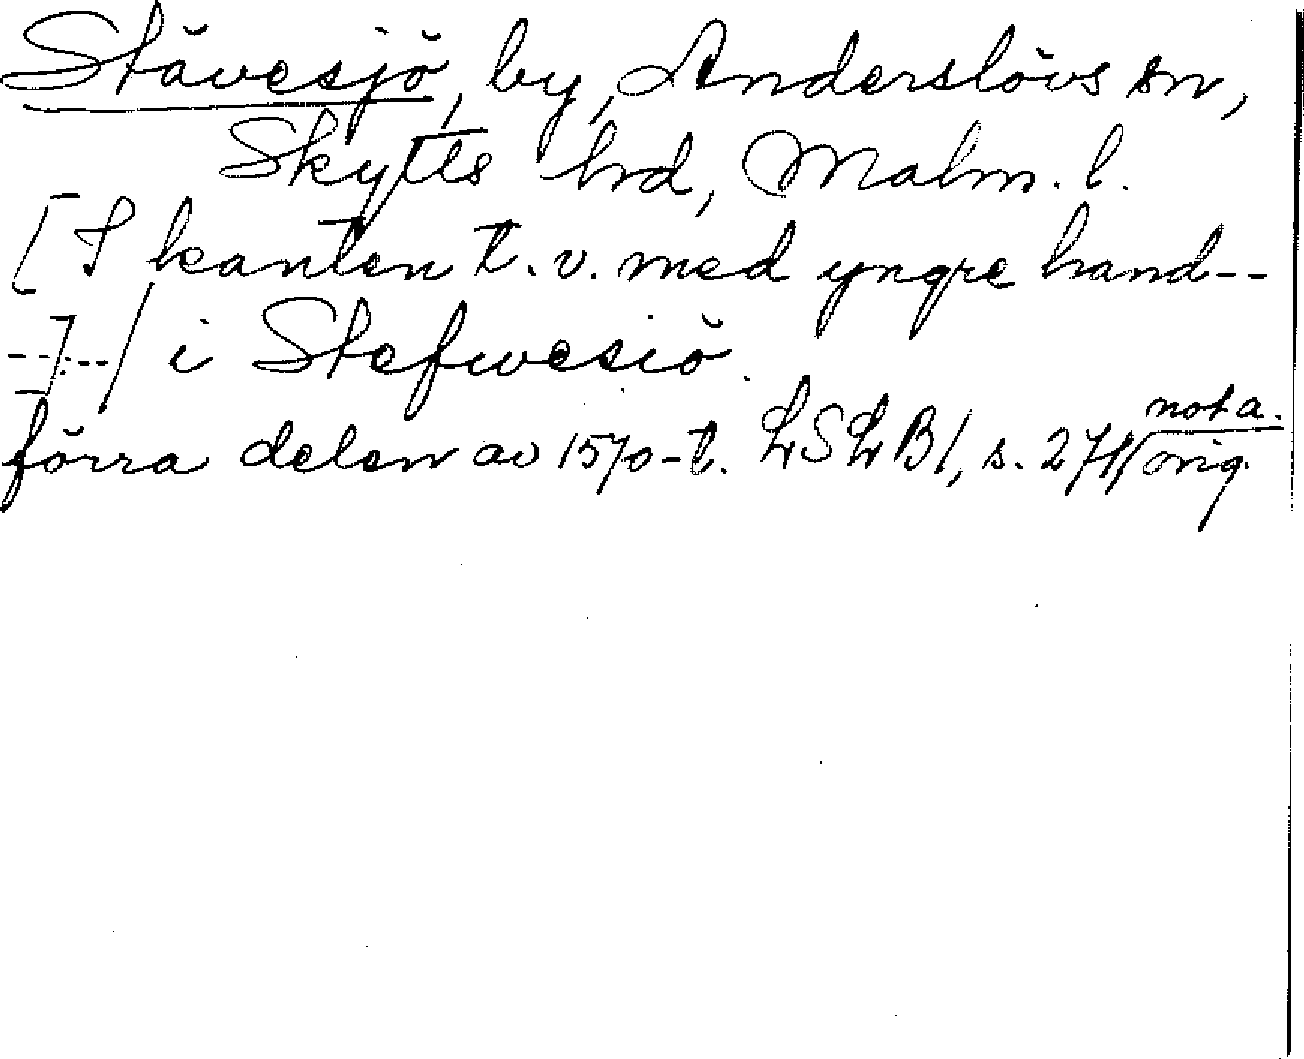 Stävesjö, by, Anderslövs sn,
Skytts hrd, Malm. l.
[I kanten t. v. med yngre hand--
-----]/ i Stefwesiö.
nota.
förra delen av 1570-t. LSLB1, s. 271/ orig.